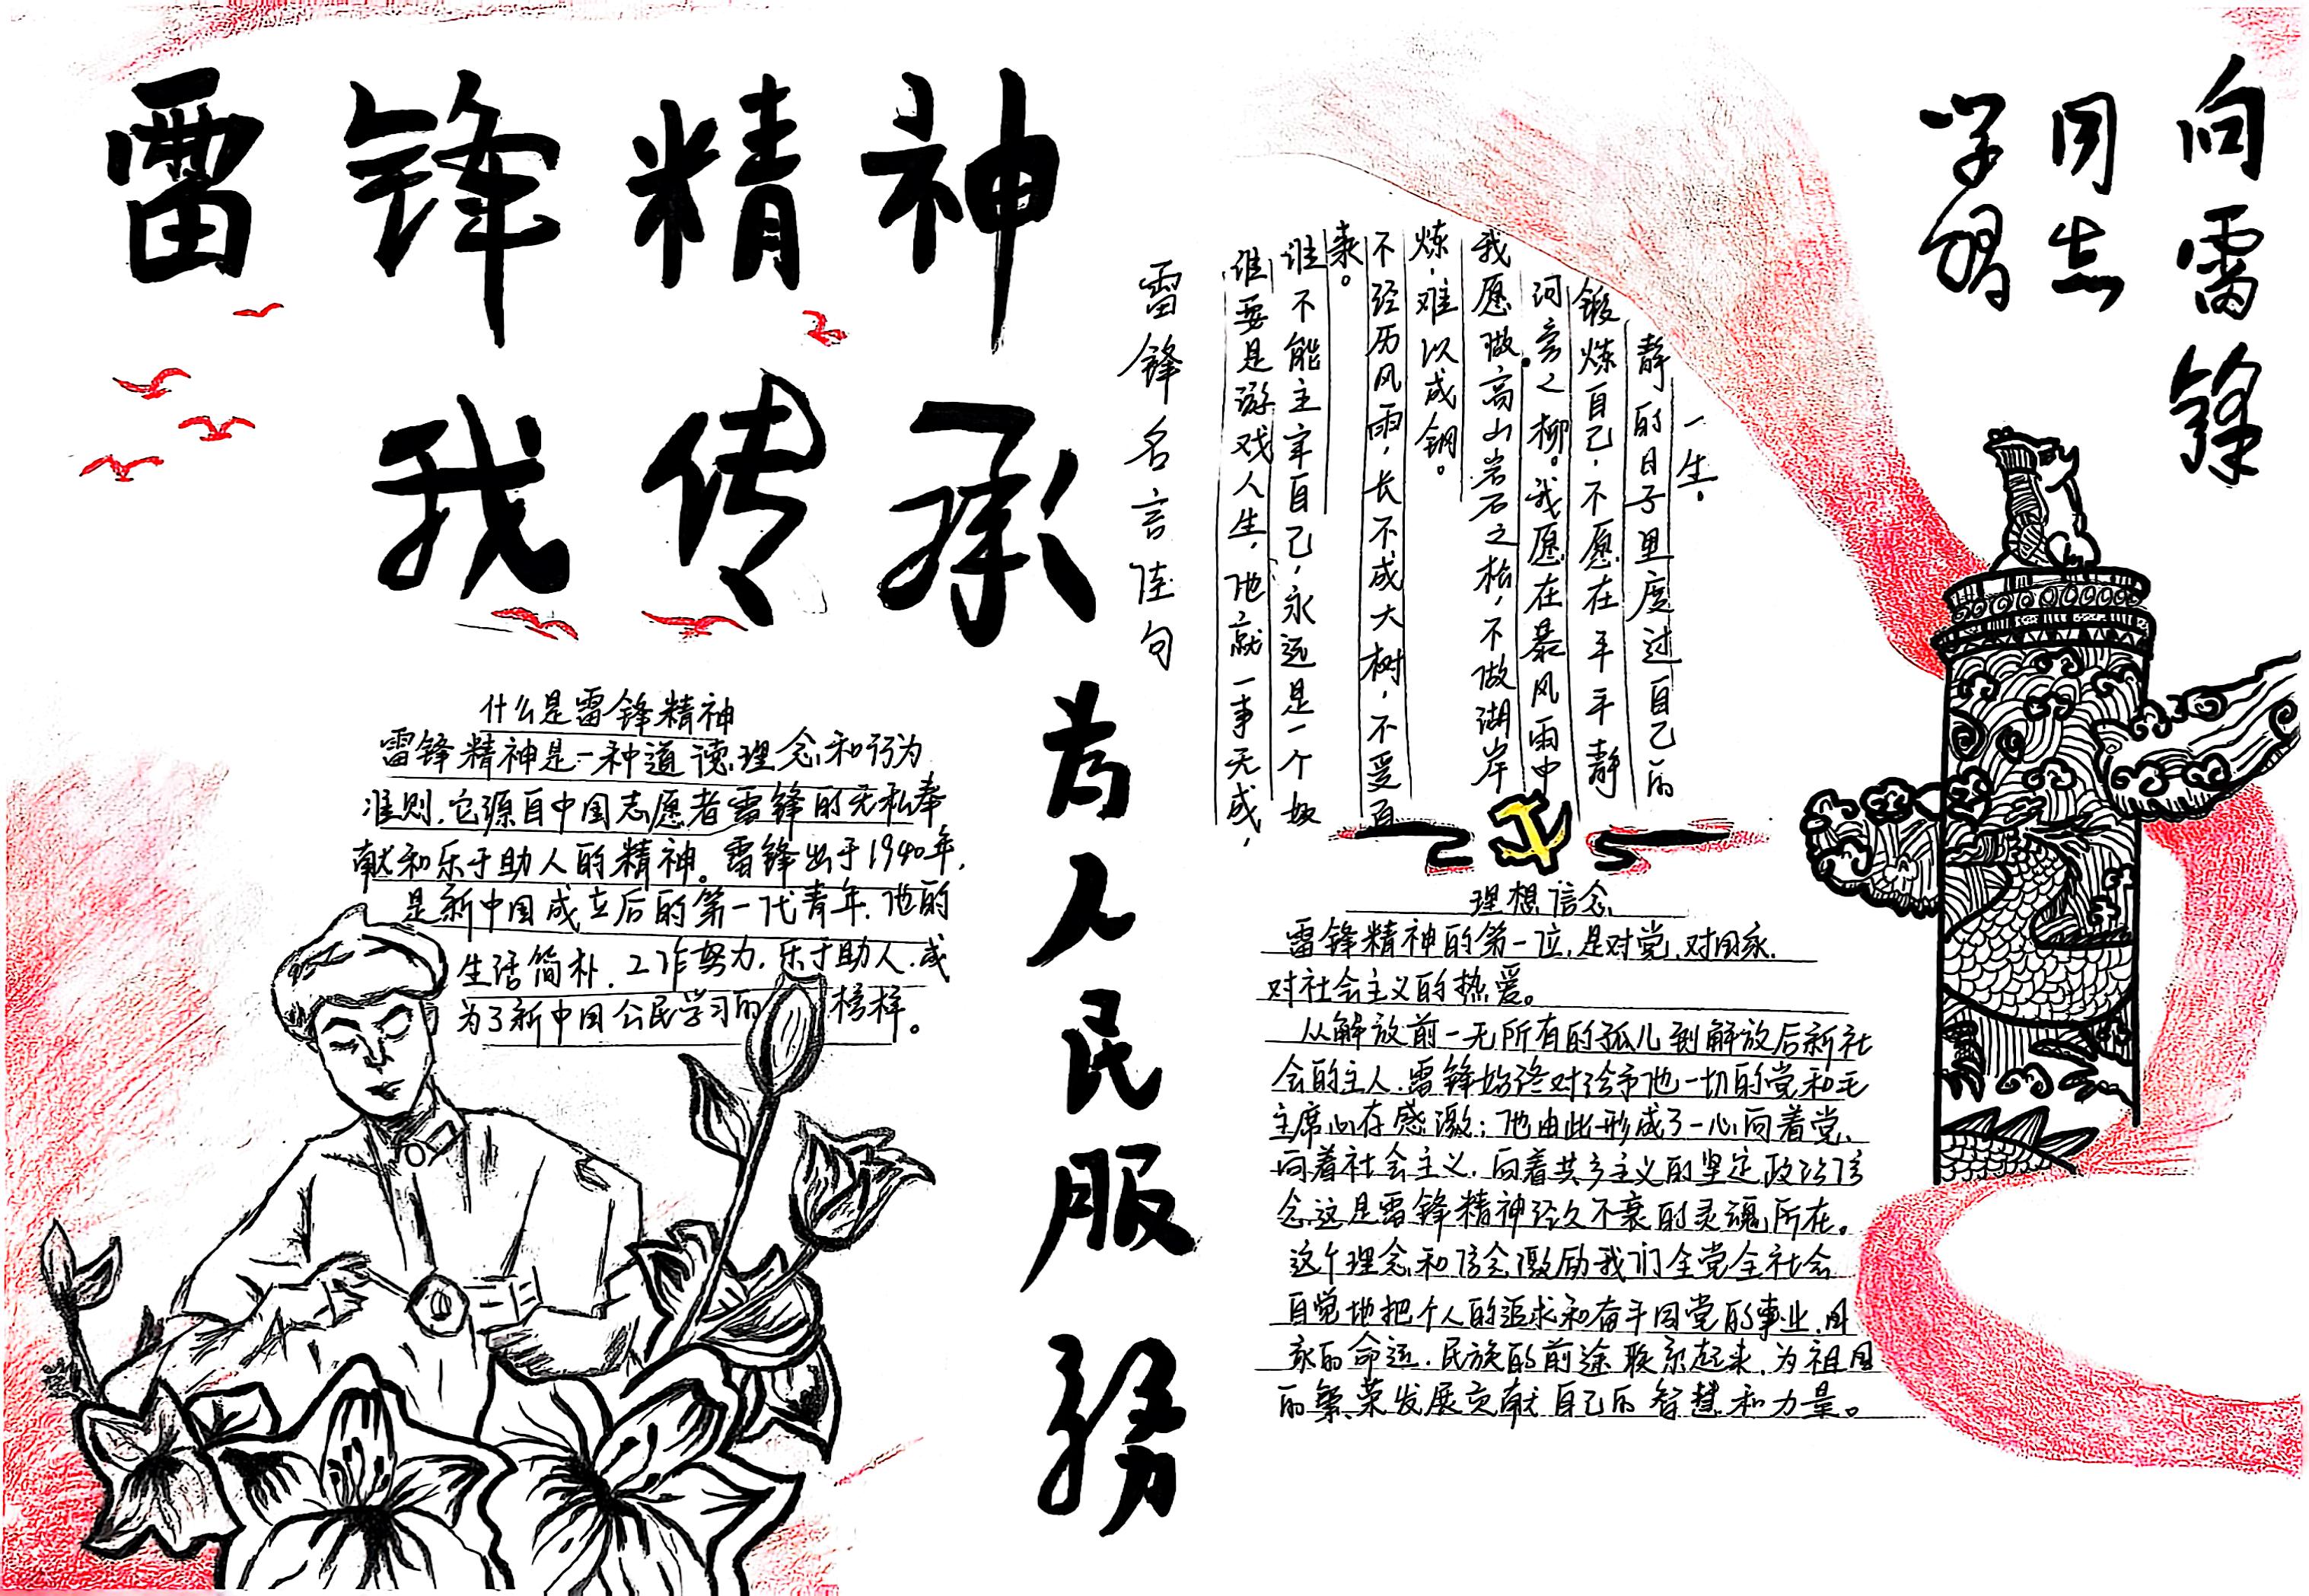 雷锋精神
我传承
为人民服务
向雷锋
同志
学习
什么是雷锋精神
雷锋精神是一种道德理念和行为
准则，它源自中国志愿者雷锋的无私奉
献和乐于助人的精神。雷锋出于1940年，
是新中国成立后的第一代青年，他的
生活简朴，工作努力，乐于助人，成
为了新中国公民学习的榜样。
雷锋名言佳句
谁要是游戏人生，他就一事无成，
谁不能主宰自己，永远是一个奴
隶。
不经历风雨，长不成大树，不受百
炼，难以成钢。
我愿做高山岩石之松，不做湖岸
河旁之柳。我愿在暴风雨中
锻炼自己，不愿在平平静
静的日子里度过自己的
一生。
理想信念
雷锋精神的第一位，是对党、对国家、
对社会主义的热爱。
从解放前一无所有的孤儿到解放后新社
会的主人，雷锋始终对给予他一切的党和毛
主席心存感激；他由此形成了一心向着党、
向着社会主义，向着共产主义的坚定政治信
念，这是雷锋精神经久不衰的灵魂所在。
这个理念和信念激励我们全党全社会
自觉地把个人的追求和奋斗同党的事业，国
家的命运，民族的前途联系起来，为祖国
的繁荣发展贡献自己的智慧和力量。